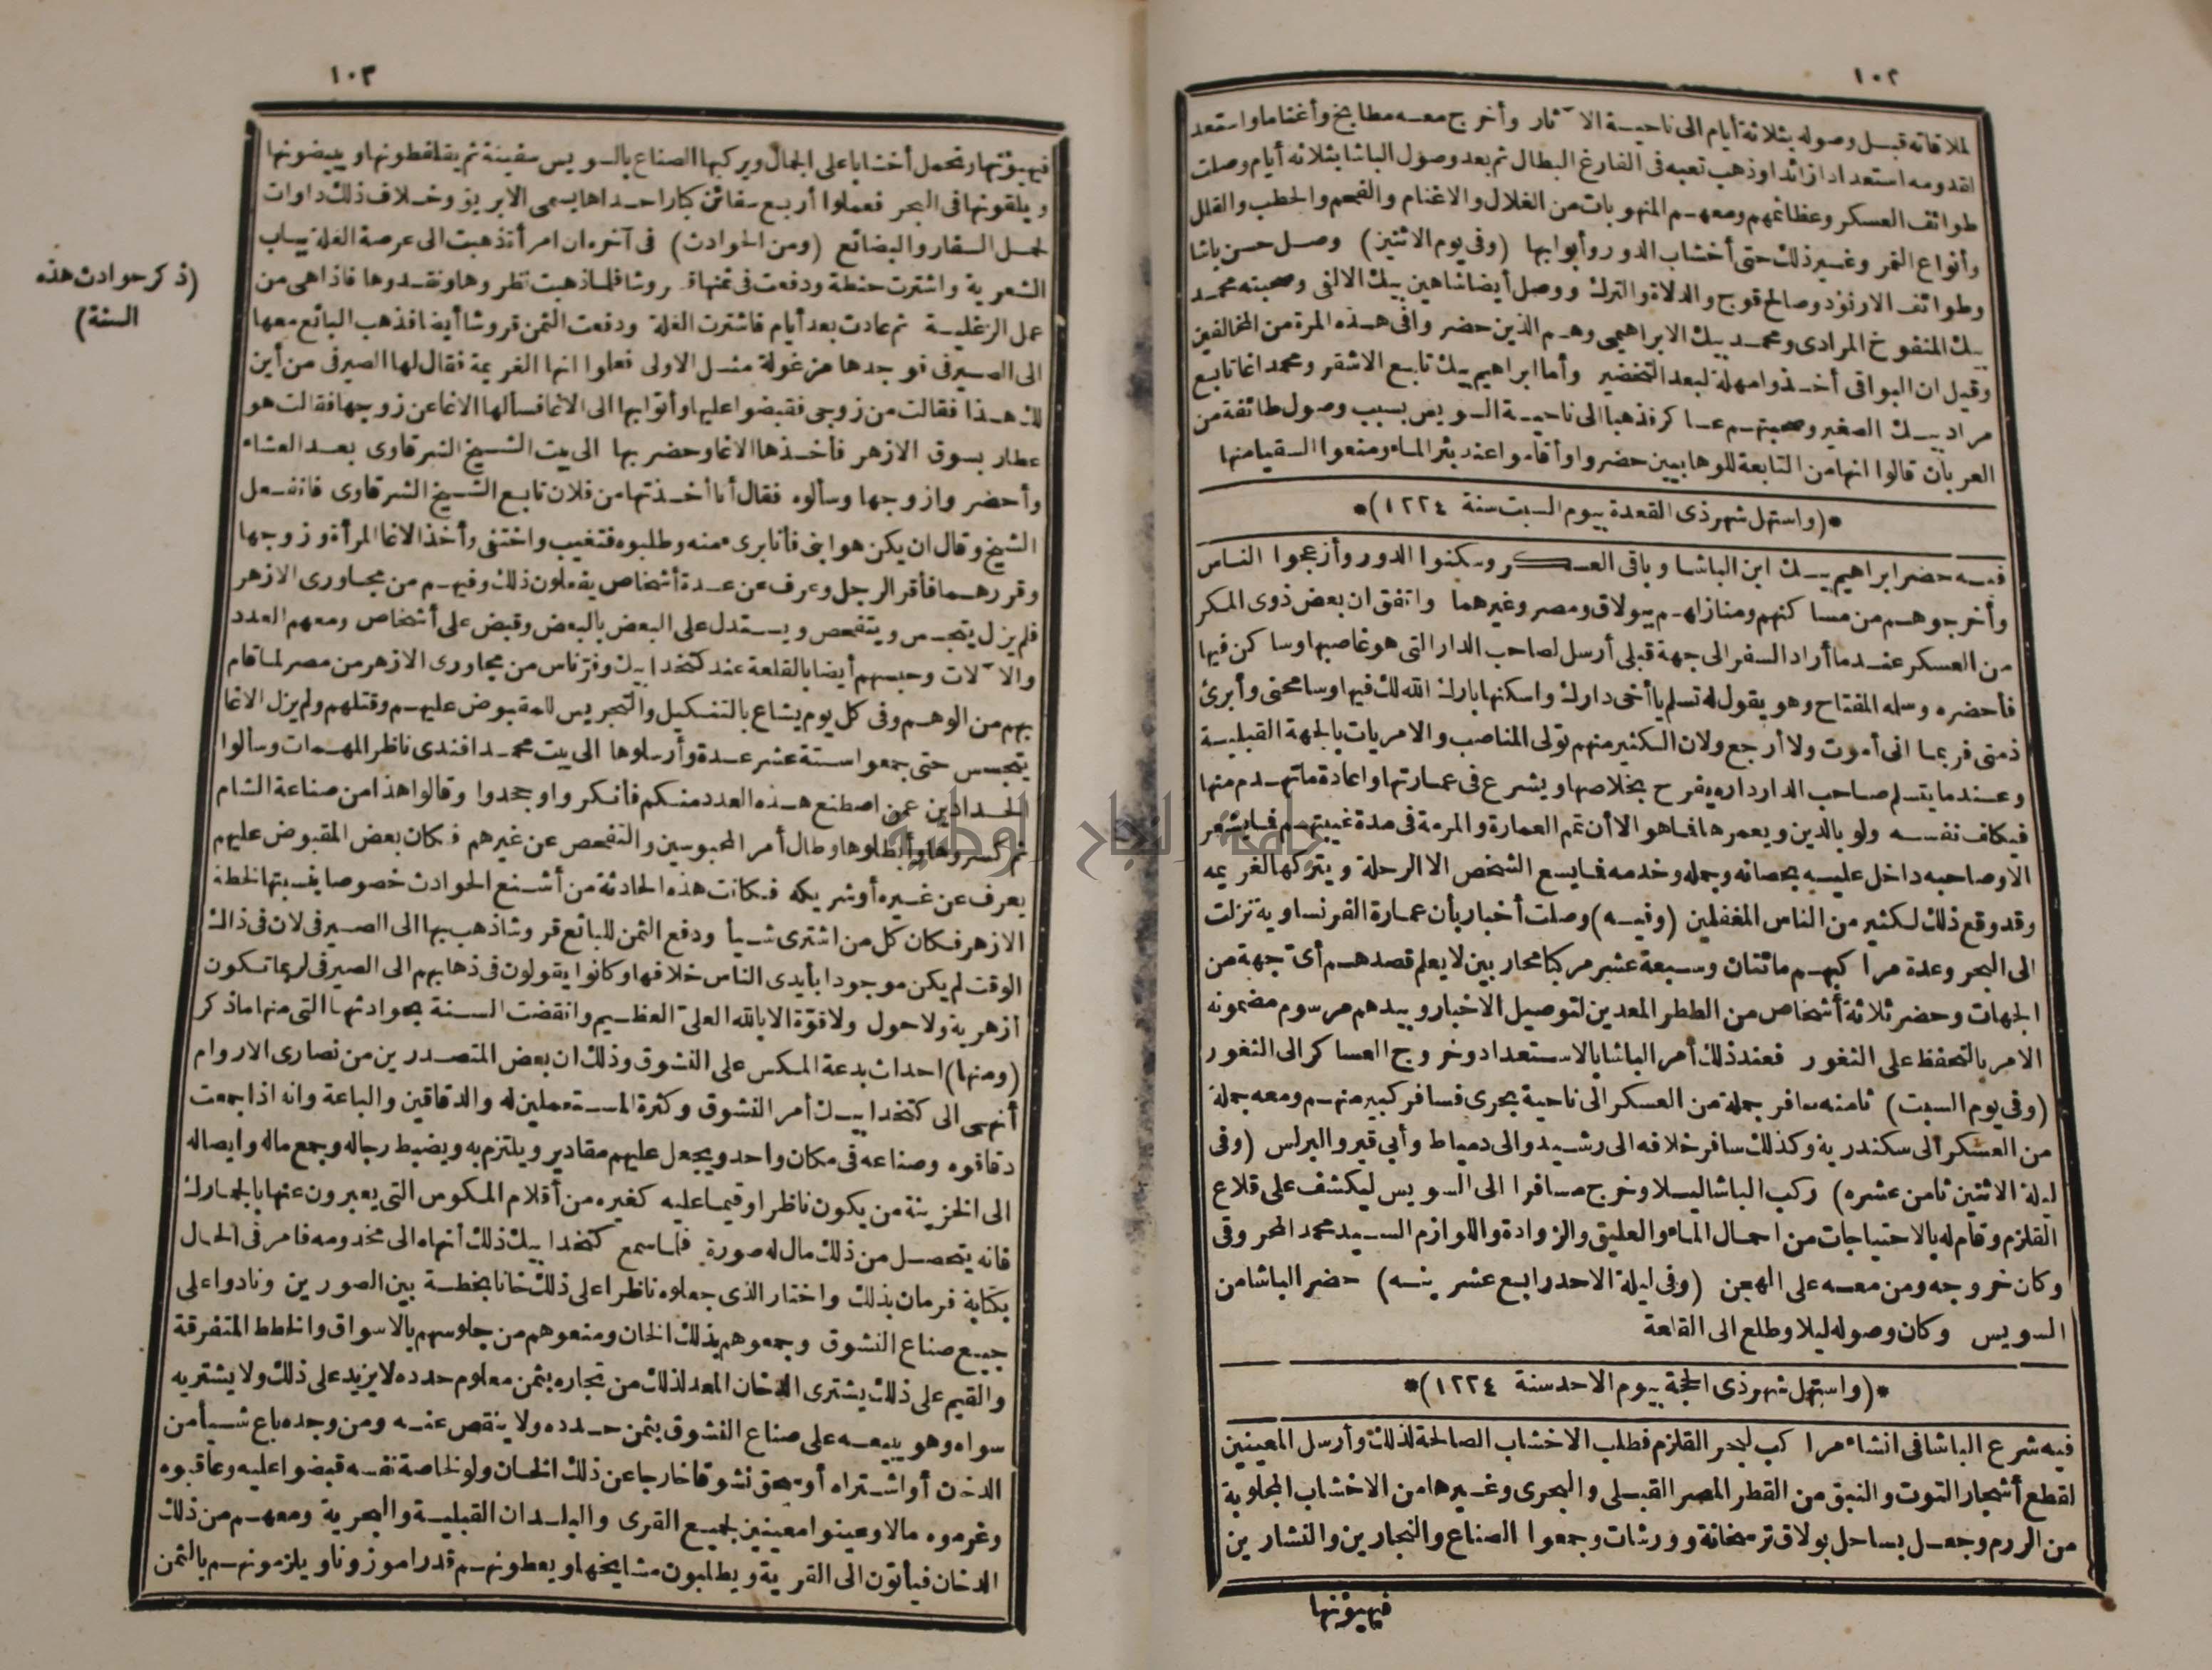 ١٠٢
لملاقاته قبل وصوله بثلاثة أيام الى ناحية الآثار وأخرج معه مطابخ وأغناما واستعد
لقدومه استعدادا زائدا وذهب تعبه فى الفارغ البطال ثم بعد وصول الباشا بثلاثة أيام وصلت
طوائف العسكر وعظائمهم ومعهم المنهوبات من الغلال والاغنام والفحم والحطب والقلل
وأنواع التمر وغير ذلك حتى أخشاب الدور وأبوابها (وفى يوم الاثنين) وصل حسن باشا
وطوائف الارنؤد وصالح قوج والدلاة والترك ووصل أيضا شاهين بيك الالفى وصحبته محمد
بيك المنفوخ المرادى ومحمد بيك الابراهيمى وهم الذين حضر وافى هذه المرة من المخالفين
وقيل ان البواقى أخذوا مهلة لبعد التخضير وأما ابراهيم بيك تابع الاشقر ومحمد اغا تابع
مراد بيك الصغير وصحبتهم عساكر فذهبا الى ناحية السويس بسبب وصول طائفة من
العربان قالوا انها من التابعة للوهابيين حضروا وأقاموا عند بئر الماء ومنعوا السقيا منها
*(واستهل شهر ذى القعدة بيوم السبت سنة ١٢٢٤)*
فيه حضر ابراهيم بيك ابن الباشا وباقى العسكر وسكنوا الدور وأزعجوا الناس
وأخرجوهم من مساكنهم ومنازلهم ببولاق ومصر وغيرهما واتفق ان بعض ذوى المكر
من العسكر عندما أراد السفر الى جهة قبلى أرسل لصاحب الدار التى هو غاصبها وساكن فيها
فأحضره وسلمه المفتاح وهو يقول له تسلم يا أخى دارك واسكنها بارك الله لك فيها وسامحنى وأبرئ
ذمتى فربما انى أموت ولا أرجع ولان الكثير منهم تولى المناصب والامريات بالجهة القبلية
وعندما يتسلم صاحب الدار داره يفرح بخلاصها ويشرع فى عمارتها واعادة ما تهدم منها
فيكلف نفسه ولو بالدين ويعمرها فما هو الا أن تتم العمارة والمرمة فى مدة غيبتهم فما يشعر
الاوصاحبه داخل عليه بحصانه وجمله وخدمه فما يسع الشخص الا الرحلة ويتركها لغريمه
وقد وقع ذلك لكثير من الناس المغفلين (وفيه) وصلت أخبار بأن عمارة الفرنساوية نزلت
الى البحر وعدة مراكبهم مائتان وسبعة عشر مركبا محاربين لا يعلم قصدهم أى جهة من
الجهات وحضر ثلاثة أشخاص من الططر المعدين لتوصيل الاخبار وبيدهم مرسوم مضمونه
الامر بالتحفظ على الثغور فعند ذلك أمر الباشا بالاستعداد وخروج العساكر الى الثغور
(وفى يوم السبت) ثامنه سافر جملة من العسكر الى ناحية بحرى فسافر كبير منهم ومعه جملة
من العسكر الى سكندرية وكذلك سافر خلافه الى رشيد والى دمياط وأبى قير والبرلس (وفى
ليلة الاثنين ثامن عشره) ركب الباشا ليلا وخرج مسافرا الى السويس ليكشف على قلاع
القلزم وقام له بالاحتياجات من احمال الماء والعليق والزوادة واللوازم السيد محمد المحروقى
وكان خروجه ومن معه على الهجن (وفى ليلة الاحد رابع عشرينه) حضر الباشا من
السويس وكان وصوله ليلا وطلع الى القلعة
*(واستهل شهر ذى الحجة بيوم الاحد سنة ١٢٢٤)*
فيه شرع الباشا فى انشاء مراكب لبحر القلزم فطلب الاخشاب الصالحة لذلك وأرسل المعينين
لقطع أشجار التوت والنبق من القطر المصر القبلى والبحرى وغيرها من الاخشاب المجلوبة
من الروم وجعل بساحل بولاق ترسخانة وورشات وجمعوا الصناع والنجارين والنشارين
فيهيؤنها
١٠٣
فيهيؤنها وتحمل أخشابا على الجمال ويركبها الصناع بالسويس سفينة ثم يقلفطونها ويبيضونها
ويلقونها فى البحر فعملوا أربع سفائن كبارا احداها يسمى الابريق وخلاف ذلك داوات
لحمل السفار والبضائع (ومن الحوادث) فى آخره ان امرأة ذهبت الى عرصة الغلة بباب
الشعرية واشترت حنطة ودفعت فى ثمنها قروشا فلما ذهبت نظروها ونقدوها فاذا هى من
عمل الزغلية ثم عادت بعد أيام فاشترت الغلة ودفعت الثمن قروشا أيضا فذهب البائع معها
الى الصيرفى فوجدها مزغولة مثل الاولى فعلموا انها الغريمة فقال لها الصيرفى من أين
لك هذا فقالت من زوجى فقبضوا عليها وأتوا بها الى الاغا فسألها الاغا عن زوجها فقالت هو
عطار بسوق الازهر فأخذها الاغا وحضر بها الى بيت الشيخ الشرقاوى بعد العشاء
وأحضروا زوجها وسألوه فقال أنا أخذتها من فلان تابع الشيخ الشرقاوى فانفعل
الشيخ وقال ان يكن هو ابنى فأنا برىء منه وطلبوه فتغيب واختفى وأخذ الاغا المرأة وزوجها
وقررهما فأقر الرجل وعرف عن عدة أشخاص يفعلون ذلك وفيهم من مجاورى الازهر
فلم يزل يتجسس ويتفحص ويستدل على البعض بالبعض وقبض على أشخاص ومعهم العدد
والآلات وحبسهم أيضا بالقلعة عند كتخدا بيك وفر ناس من مجاورى الازهر من مصر لما قام
بهم من الوهم وفى كل يوم يشاع بالتنكيل والتجريس للمقبوض عليهم وقتلهم ولم يزل الاغا
يتجسس حتى جمعوا ستة عشر عدة وأرسلوها الى بيت محمد افندى ناظر المهمات وسألوا
الحدادين عمن اصطنع هذه العدد منكم فأنكروا وجحدوا وقالوا هذا من صناعة الشام
ثم كسروها وأبطلوها وطال أمر المحبوسين والتفحص عن غيرهم فكان بعض المقبوض عليهم
يعرف عن غيره أو شريكه فكانت هذه الحادثة من أشنع الحوادث خصوصا بنسبتها لخطة
الازهر فكان كل من اشترى شيأ ودفع الثمن للبائع قروشا ذهب بها الى الصيرفى لان فى ذلك
الوقت لم يكن موجودا بأيدى الناس خلافها وكانوا يقولون فى ذهابهم الى الصيرفى لربما تكون
أزهرية ولا حول ولا قوة الا بالله العلىّ العظيم وانقضت السنة بحوادثها التى منها ما ذكر
(ومنها) احداث بدعة المكس على النشوق وذلك ان بعض المتصدرين من نصارى الاروام
أنهى الى كتخدا بيك أمر النشوق وكثرة المستعملين له والدقاقين والباعة وانه اذا جمعت
دقاقوه وصناعه فى مكان واحد ويجعل عليهم مقادير ويلتزم به ويضبط رجاله وجمع ماله وايصاله
الى الخزينة من يكون ناظرا وقيما عليه كغيره من أقلام المكوس التى يعبرون عنها بالجمارك
فانه يتحصل من ذلك مال له صورة فلما سمع كتخدا بيك ذلك أنهاه الى مخدومه فامر فى الحال
بكتابة فرمان بذلك واختار الذى جعلوه ناظرا على ذلك خانا بخطة بين الصورين ونادوا على
جميع صناع النشوق وجمعوهم بذلك الخان ومنعوهم من جلوسهم بالاسواق والخطط المتفرقة
والقيم على ذلك يشترى الدخان المعد لذلك من تجاره بثمن معلوم حدده لا يزيد على ذلك ولا يشتريه
سواه وهو يبيعه على صناع النشوق بثمن حدده ولا ينقص عنه ومن وجده باع شيأ من
الدخان أو اشتراه أو سحق نشوقا خارجا عن ذلك الخان ولو لخاصة نفسه قبضوا عليه وعاقبوه
وغرموه مالا وعينوا معينين لجميع القرى والبلدان القبلية والبحرية ومعهم من ذلك
الدخان فيأتون الى القرية ويطلبون مشايخها ويعطونهم قدرا موزونا ويلزمونهم بالثمن
(ذكر حوادث هذه
السنة)
جامعة النجاح الوطنية